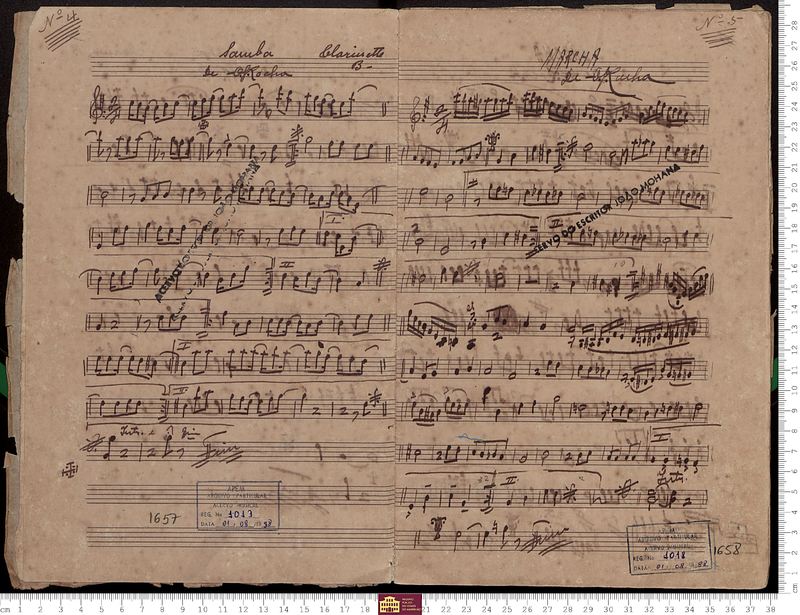 Nº 4
Samba Clarinette
B-
de Rocha
I
II
II
II
Fim
ACERVO DO ESCRITOR JOÃO MOHANA
1657
APEM
ARQUIVO PARTICULAR
ACERVO MUSICAL
REG. No 1017
DATA 01 08 88
Nº 5
MARCHA
de Rocha
ACERVO DO ESCRITOR JOÃO MOHANA
II
I
II
Fim
APEM
ARQUIVO PARTICULAR
ACERVO MUSICAL
REG. No 1018
DATA 01 08 88
1658